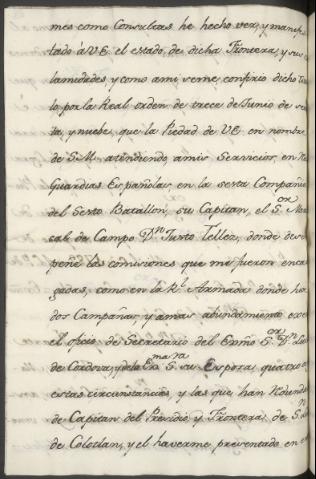 mes como Consultas he hecho ver, y manifes
tado à V.E. el estado, de dicha Frontera, y sus ca
lamidades, y como ami seme confirio dicho Titu
lo por la Real orden de trece de Junio de sesen
ta, y nuebe, que la Piedad de V.E. en nombre
de S.M. atendiendo, amis Servicios, en R.s
Guardias Españolas, en la sexta Compañia
del Sexto Batallon, su Capitan, el S.or Maris
cal de Campo D.n Justo Tellez, donde desem
peñe las comisiones que me fueron encar
gadas, como en la R.l Armada donde ha
dos Campañas, y amas abundamiento exer
el oficio de Secretario del Exmo S.or D.n Luis
de Cordova, y de la Ex.ma S.ra su Esposa, quatro
estas circunstancias, y las que han redunda
de Capitan del Presidio, y Frontera, de S.n
de Colotlan, y el haverme presentado en